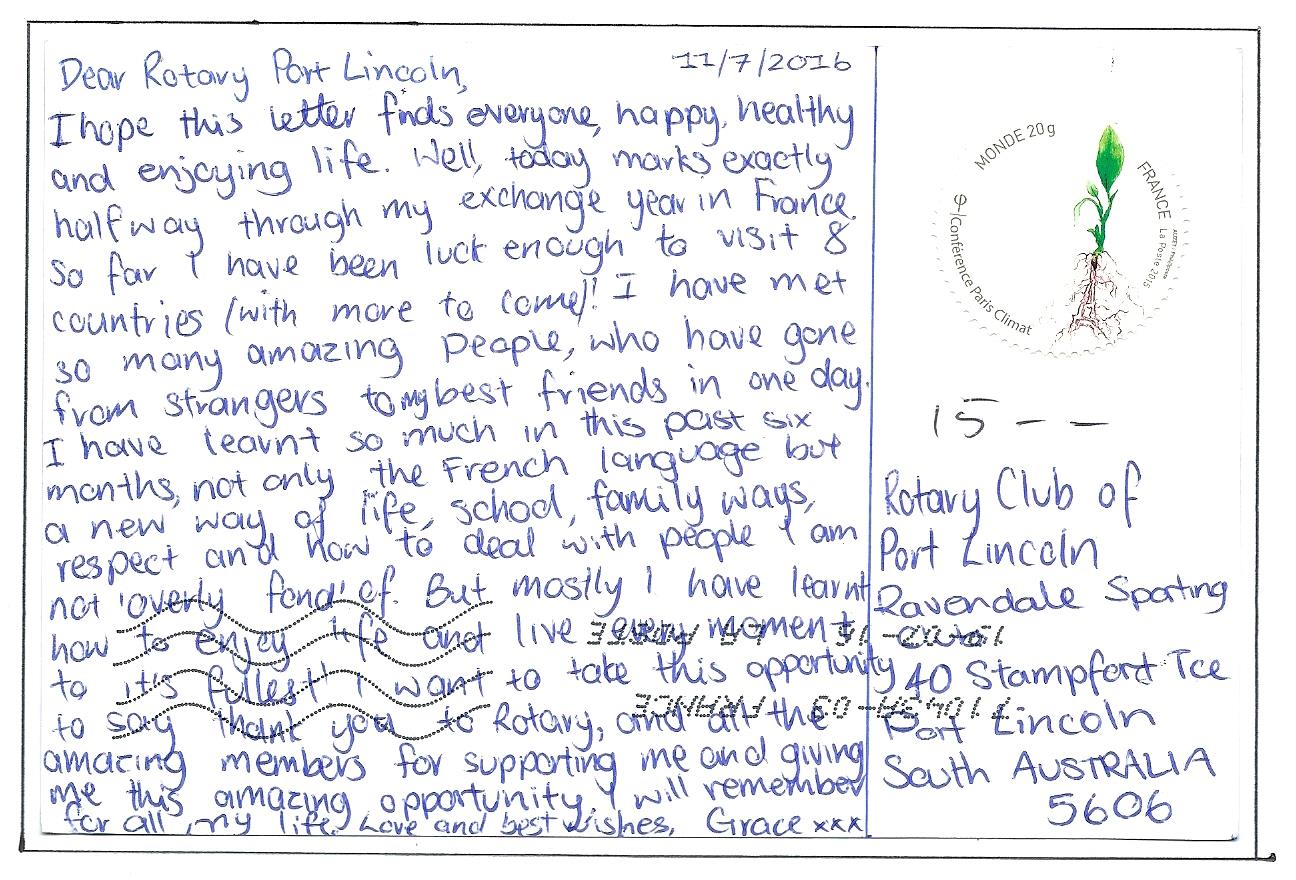 Dear Rotary Port Lincoln,
11/7/2016
I hope this letter finds everyone, happy, healthy
and enjoying life. Well, today marks exactly
halfway through my exchange year in France.
So far I have been luck enough to visit 8
countries (with more to come)! I have met
so many amazing people, who have gone
from strangers to my best friends in one day.
I have learnt so much in this past six
months, not only the French language but
a new way of life, school, family ways,
respect and how to deal with people I am
not 'overly fond' of. But mostly I have learnt
how to enjoy life and live every moment
to it's fullest! I want to take this opportunity
to say thank you to Rotary, and all the
amazing members for supporting me and giving
me this amazing opportunity. I will remember
for all my life. Love and best wishes, Grace xxx
MONDE 20g
FRANCE La Poste 2015
Conférence Paris Climat
15 - -
Rotary Club of
Port Lincoln
Ravendale Sporting
40 Stampfort Tce
Port Lincoln
South AUSTRALIA
5606
LA POSTE
FRANCE